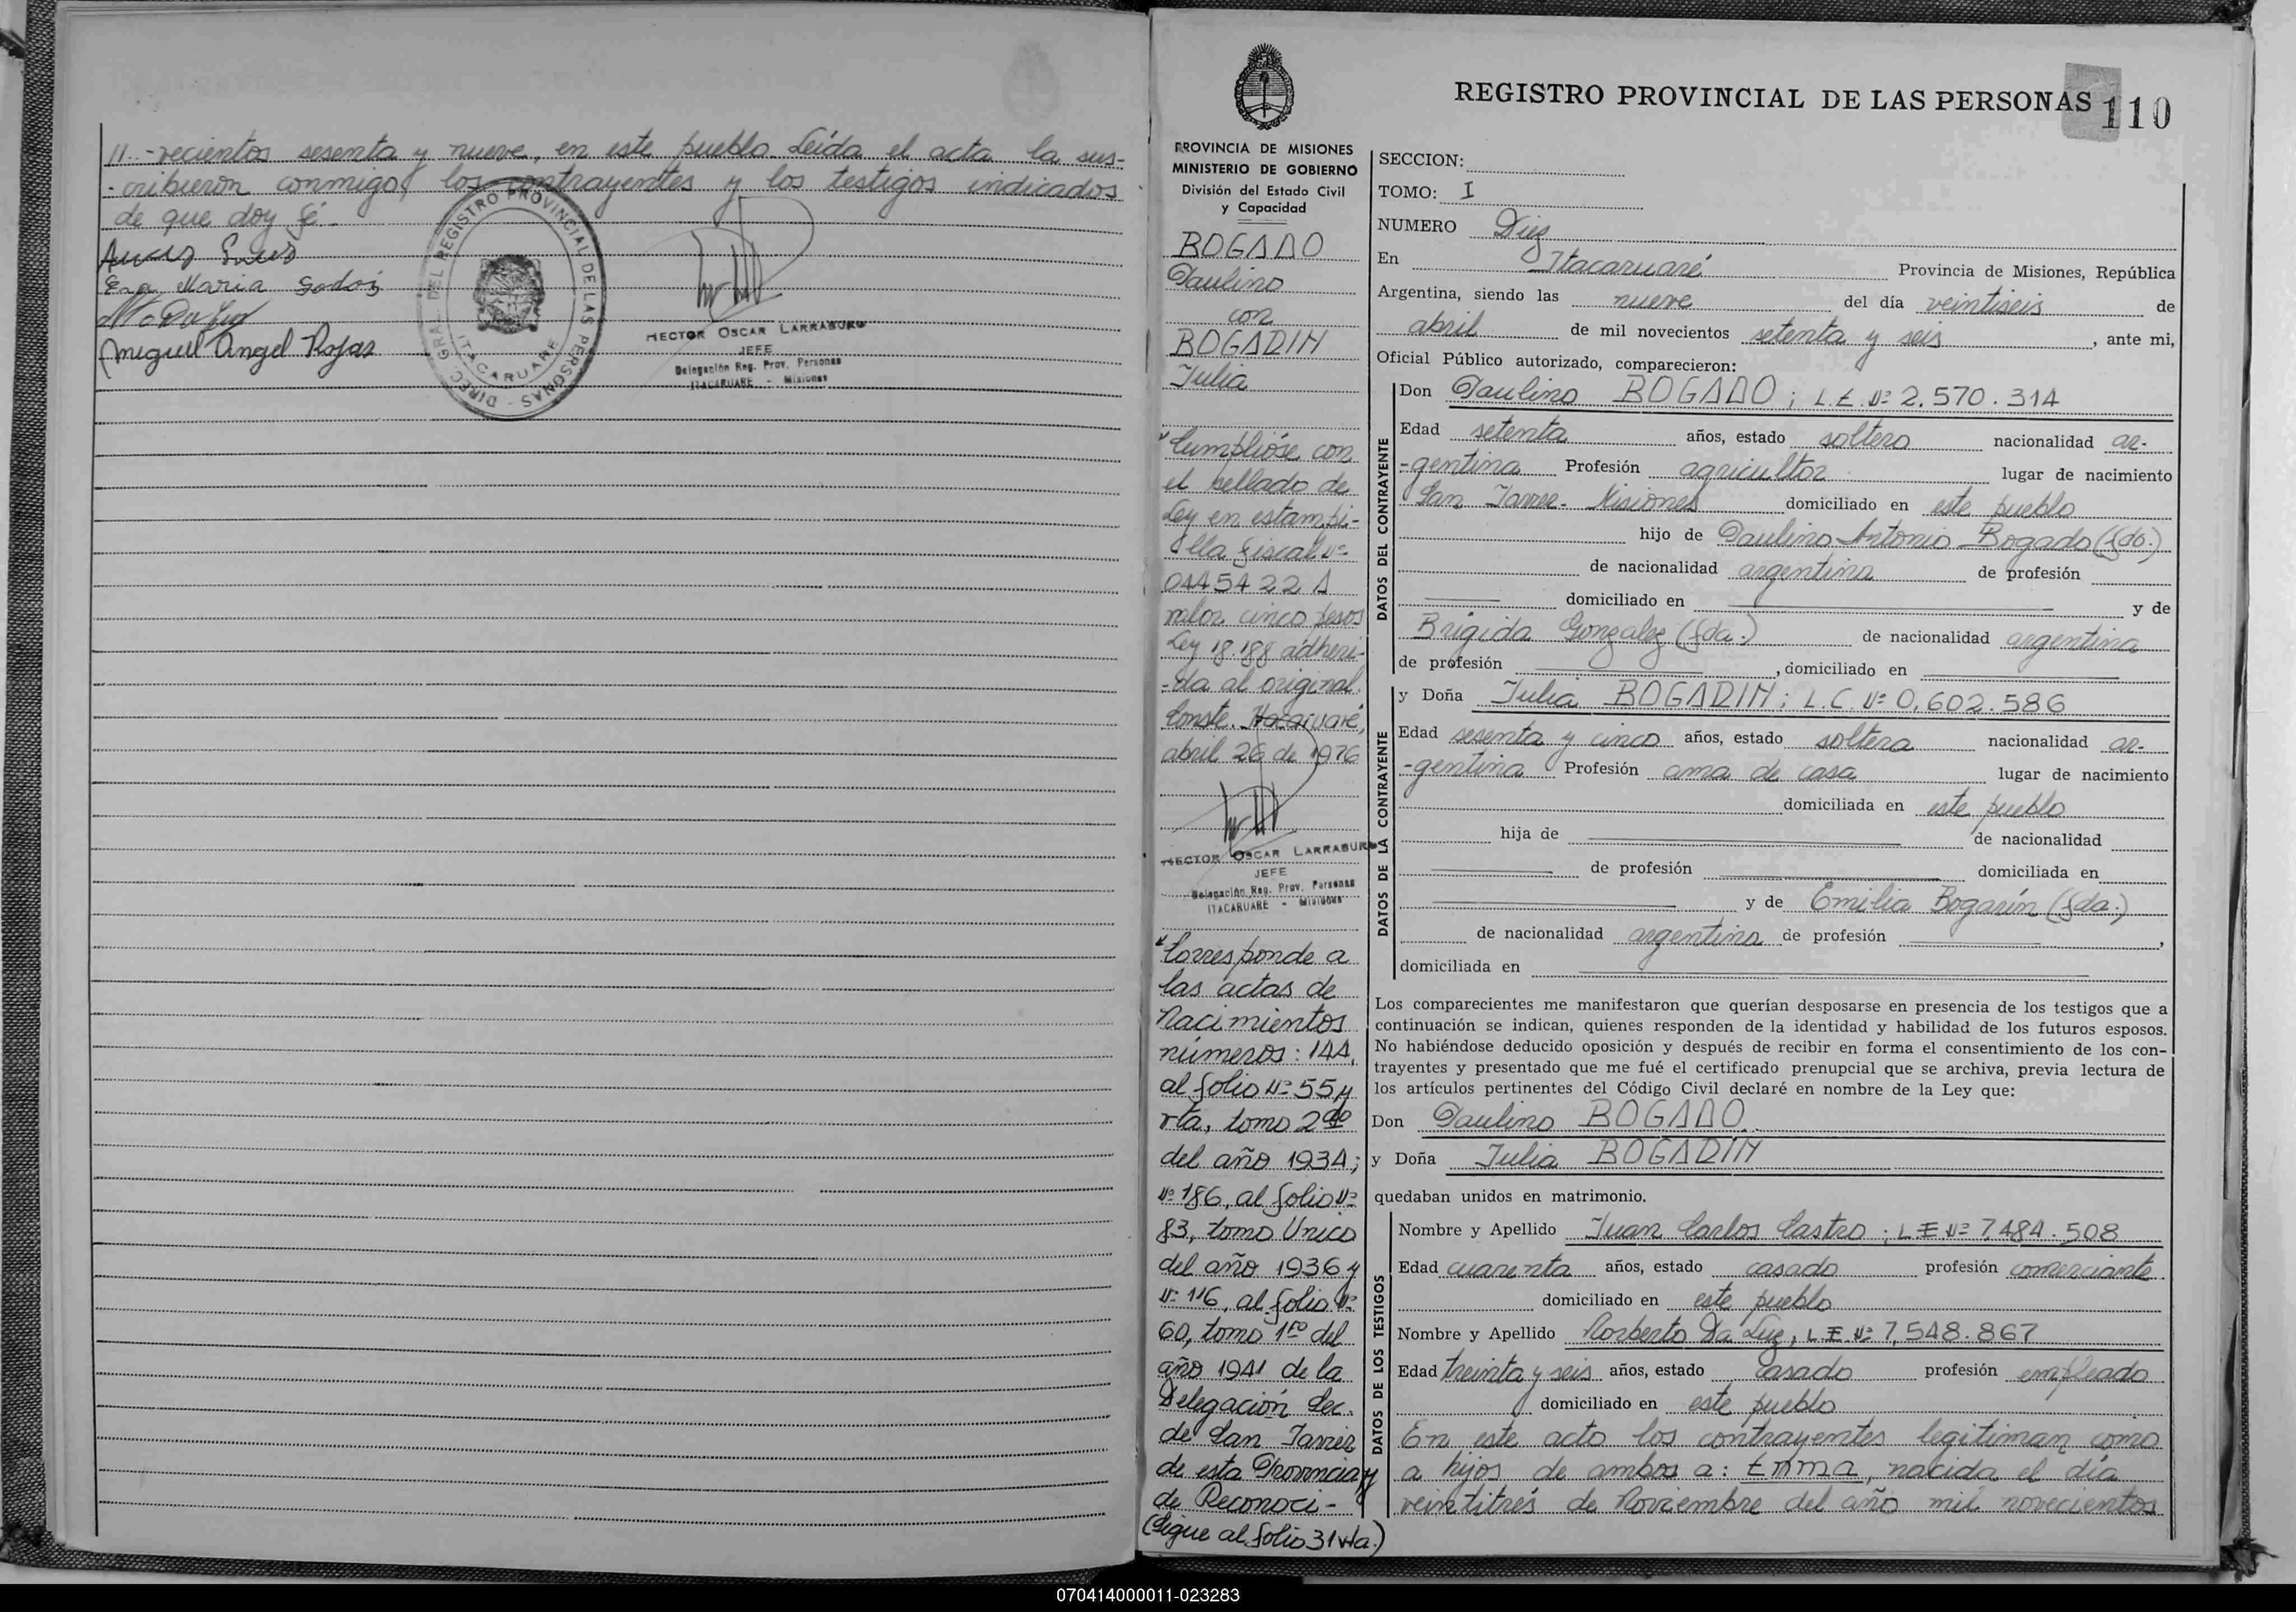 11.-vecientos sesenta y nueve, en este pueblo. Leída el acta la sus-
-cribieron conmigo, los contrayentes y los testigos indicados
de que doy fé.-
Maria Godoy
Miguel Angel Rojas
DIREC. GRAL. DEL REGISTRO PROVINCIAL DE LAS PERSONAS -
ITACARUARE
HECTOR OSCAR LARRABURU
JEFE
Delegación Reg. Prov. Personas
ITACARUARE - Misiones
REGISTRO PROVINCIAL DE LAS PERSONAS 110
PROVINCIA DE MISIONES
MINISTERIO DE GOBIERNO
División del Estado Civil
y Capacidad
BOGADO
Paulino
con
BOGARIN
Julia
"Cumplióse con
el sellado de
Ley en estampi-
lla fiscal Nº
0445422 A
valor cinco pesos
Ley 18.188 adheri-
-da al original.
Conste. Itacaruaré,
abril 26 de 1976
HECTOR OSCAR LARRABURU
JEFE
Delegación Reg. Prov. Personas
ITACARUARE - Misiones
"Corresponde a
las actas de
Nacimientos
números: 144,
al folio Nº 55 y
vta, tomo 2do
del año 1934;
Nº 186, al folio Nº
83, tomo Unico
del año 1936 y
Nº 116, al folio Nº
60, tomo 1ro del
año 1941 de la
Delegación Sec.
de San Javier
de esta Provincia y
de Reconoci-
(Sigue al folio 31 vta.)
SECCION:
TOMO: I
NUMERO Diez
En Itacaruaré Provincia de Misiones, República
Argentina, siendo las nueve del día veintiseis de
abril de mil novecientos setenta y seis, ante mi,
Oficial Público autorizado, comparecieron:
DATOS DEL CONTRAYENTE
Don Paulino BOGADO; L.E. Nº 2.570.314
Edad setenta años, estado soltero nacionalidad ar-
-gentina Profesión agricultor lugar de nacimiento
San Javier - Misiones domiciliado en este pueblo
hijo de Paulino Antonio Bogado (fdo.)
de nacionalidad argentina de profesión
domiciliado en y de
Brigida Gonzalez (fda.) de nacionalidad argentina
de profesión , domiciliado en
DATOS DE LA CONTRAYENTE
y Doña Julia BOGARIN; L.C. Nº 0.602.586
Edad sesenta y cinco años, estado soltera nacionalidad ar-
-gentina Profesión ama de casa lugar de nacimiento
domiciliada en este pueblo
hija de de nacionalidad
de profesión domiciliada en
y de Emilia Bogarín (fda.)
de nacionalidad argentina de profesión ,
domiciliada en
Los comparecientes me manifestaron que querían desposarse en presencia de los testigos que a
continuación se indican, quienes responden de la identidad y habilidad de los futuros esposos.
No habiéndose deducido oposición y después de recibir en forma el consentimiento de los con-
trayentes y presentado que me fué el certificado prenupcial que se archiva, previa lectura de
los artículos pertinentes del Código Civil declaré en nombre de la Ley que:
Don Paulino BOGADO.
y Doña Julia BOGARIN
quedaban unidos en matrimonio.
DATOS DE LOS TESTIGOS
Nombre y Apellido Juan Carlos Castro; L E Nº 7.484.508
Edad cuarenta años, estado casado profesión comerciante
domiciliado en este pueblo
Nombre y Apellido Norberto Da Luz, L E Nº 7.548.867
Edad treinta y seis años, estado casado profesión empleado
domiciliado en este pueblo
En este acto los contrayentes legitiman como
a hijos de ambos a: Emma, nacida el día
veintitrés de Noviembre del año mil novecientos
070414000011-023283